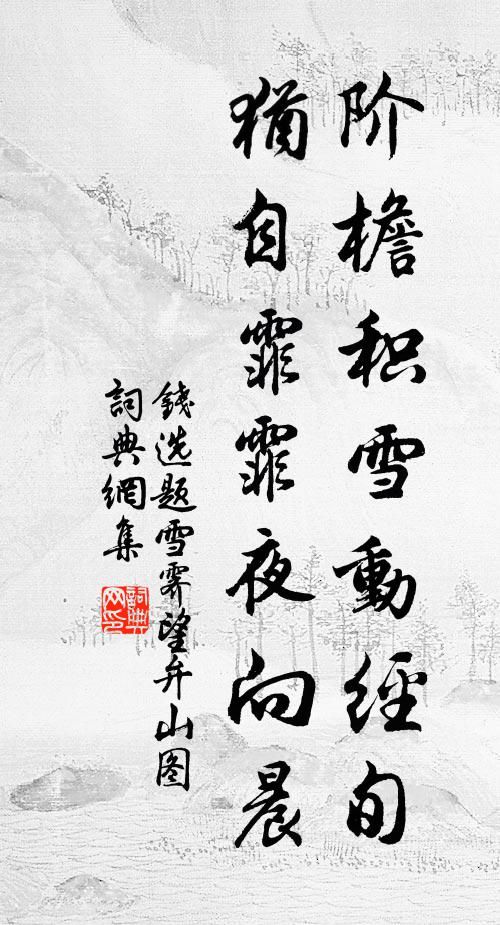 阶檐积雪動經旬
猶自霏霏夜向晨
錢选题雪霁望弁山图
詞典網集
詞典网印